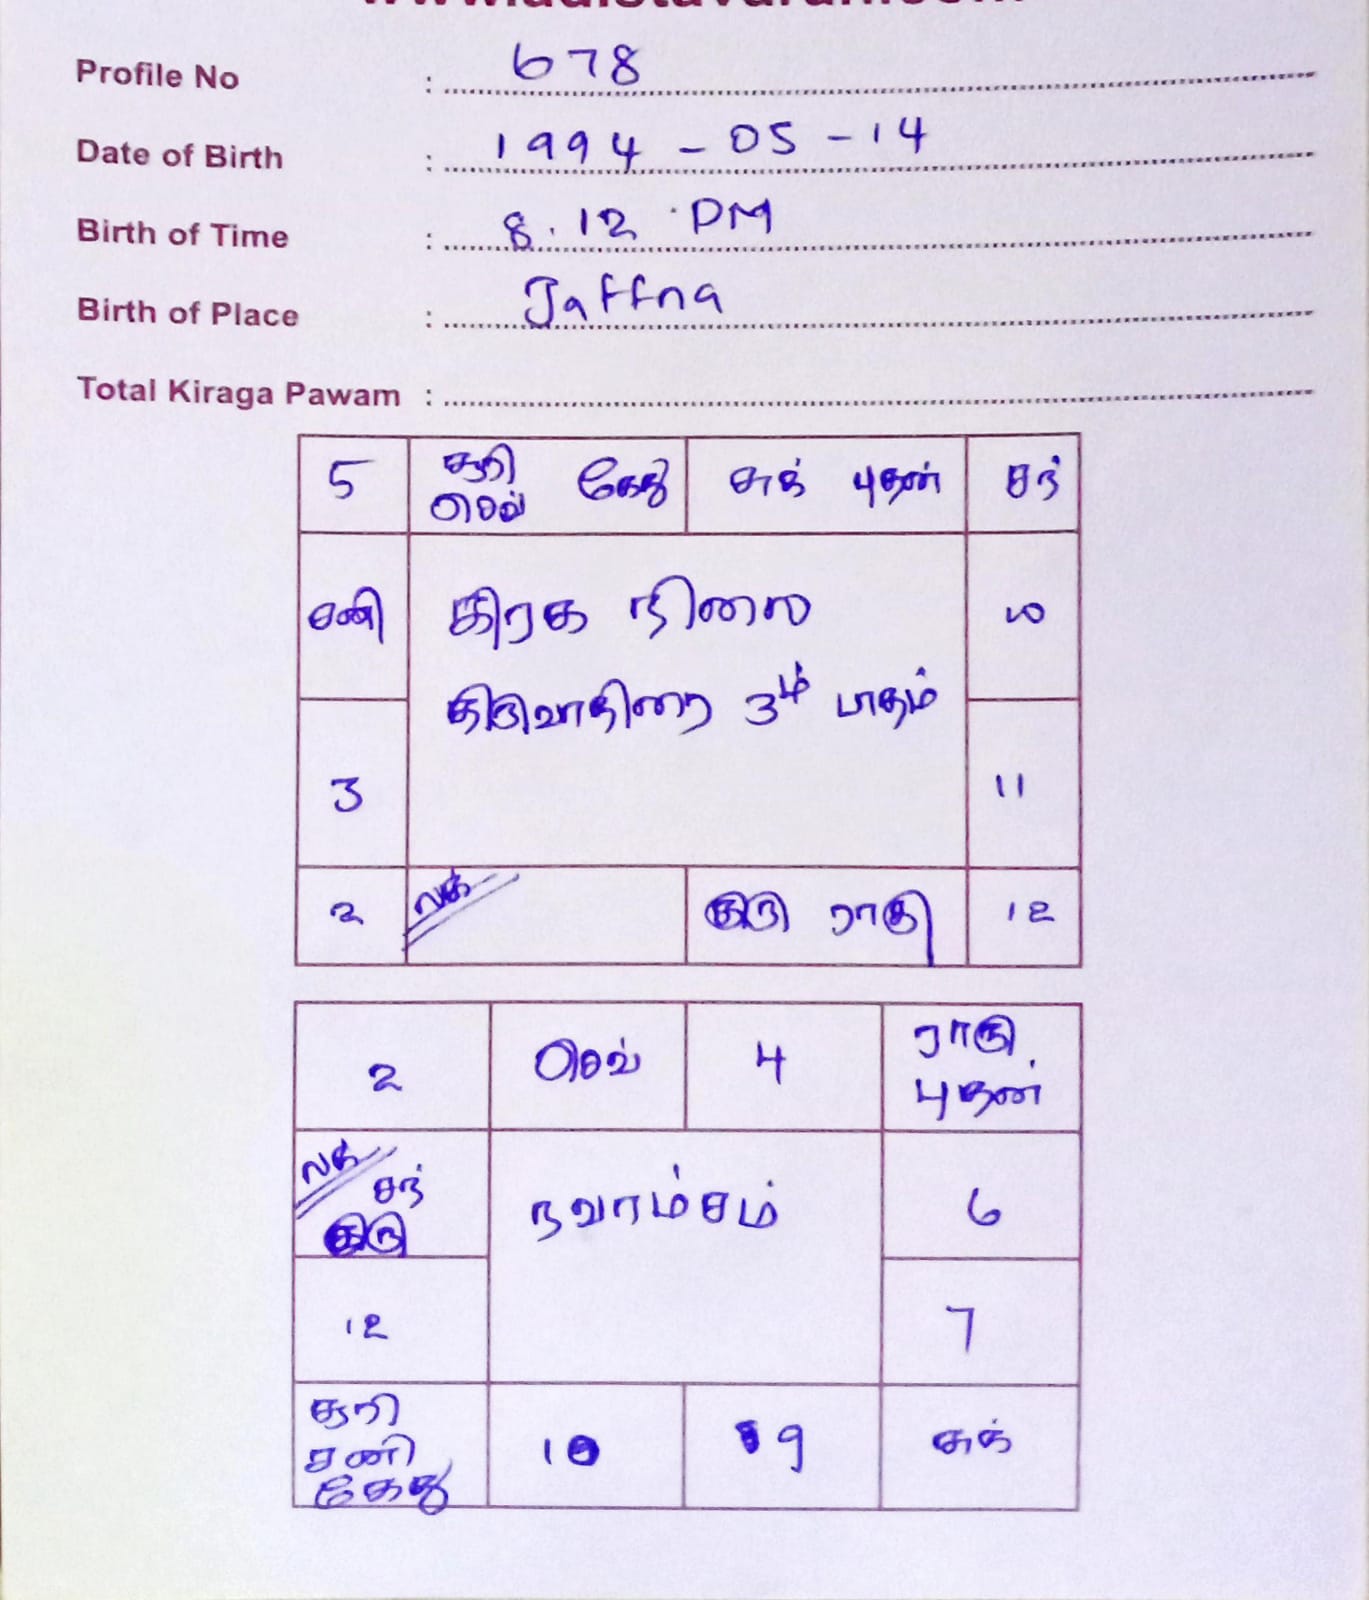 Profile No : 678
Date of Birth : 1994 - 05 - 14
Birth of Time : 8.12 PM
Birth of Place : Jaffna
Total Kiraga Pawam :
5 சூரி செவ் கேது சுக் புதன் சந்
சனி கிரக நிலை ௰
திருவாதிரை 3ம் பாதம்
3 11
2 லக் குரு ராகு 12
2 செவ் 4 ராகு புதன்
லக் சந் குரு நவாம்சம் 6
12 7
சூரி சனி கேது 10 9 சுக்